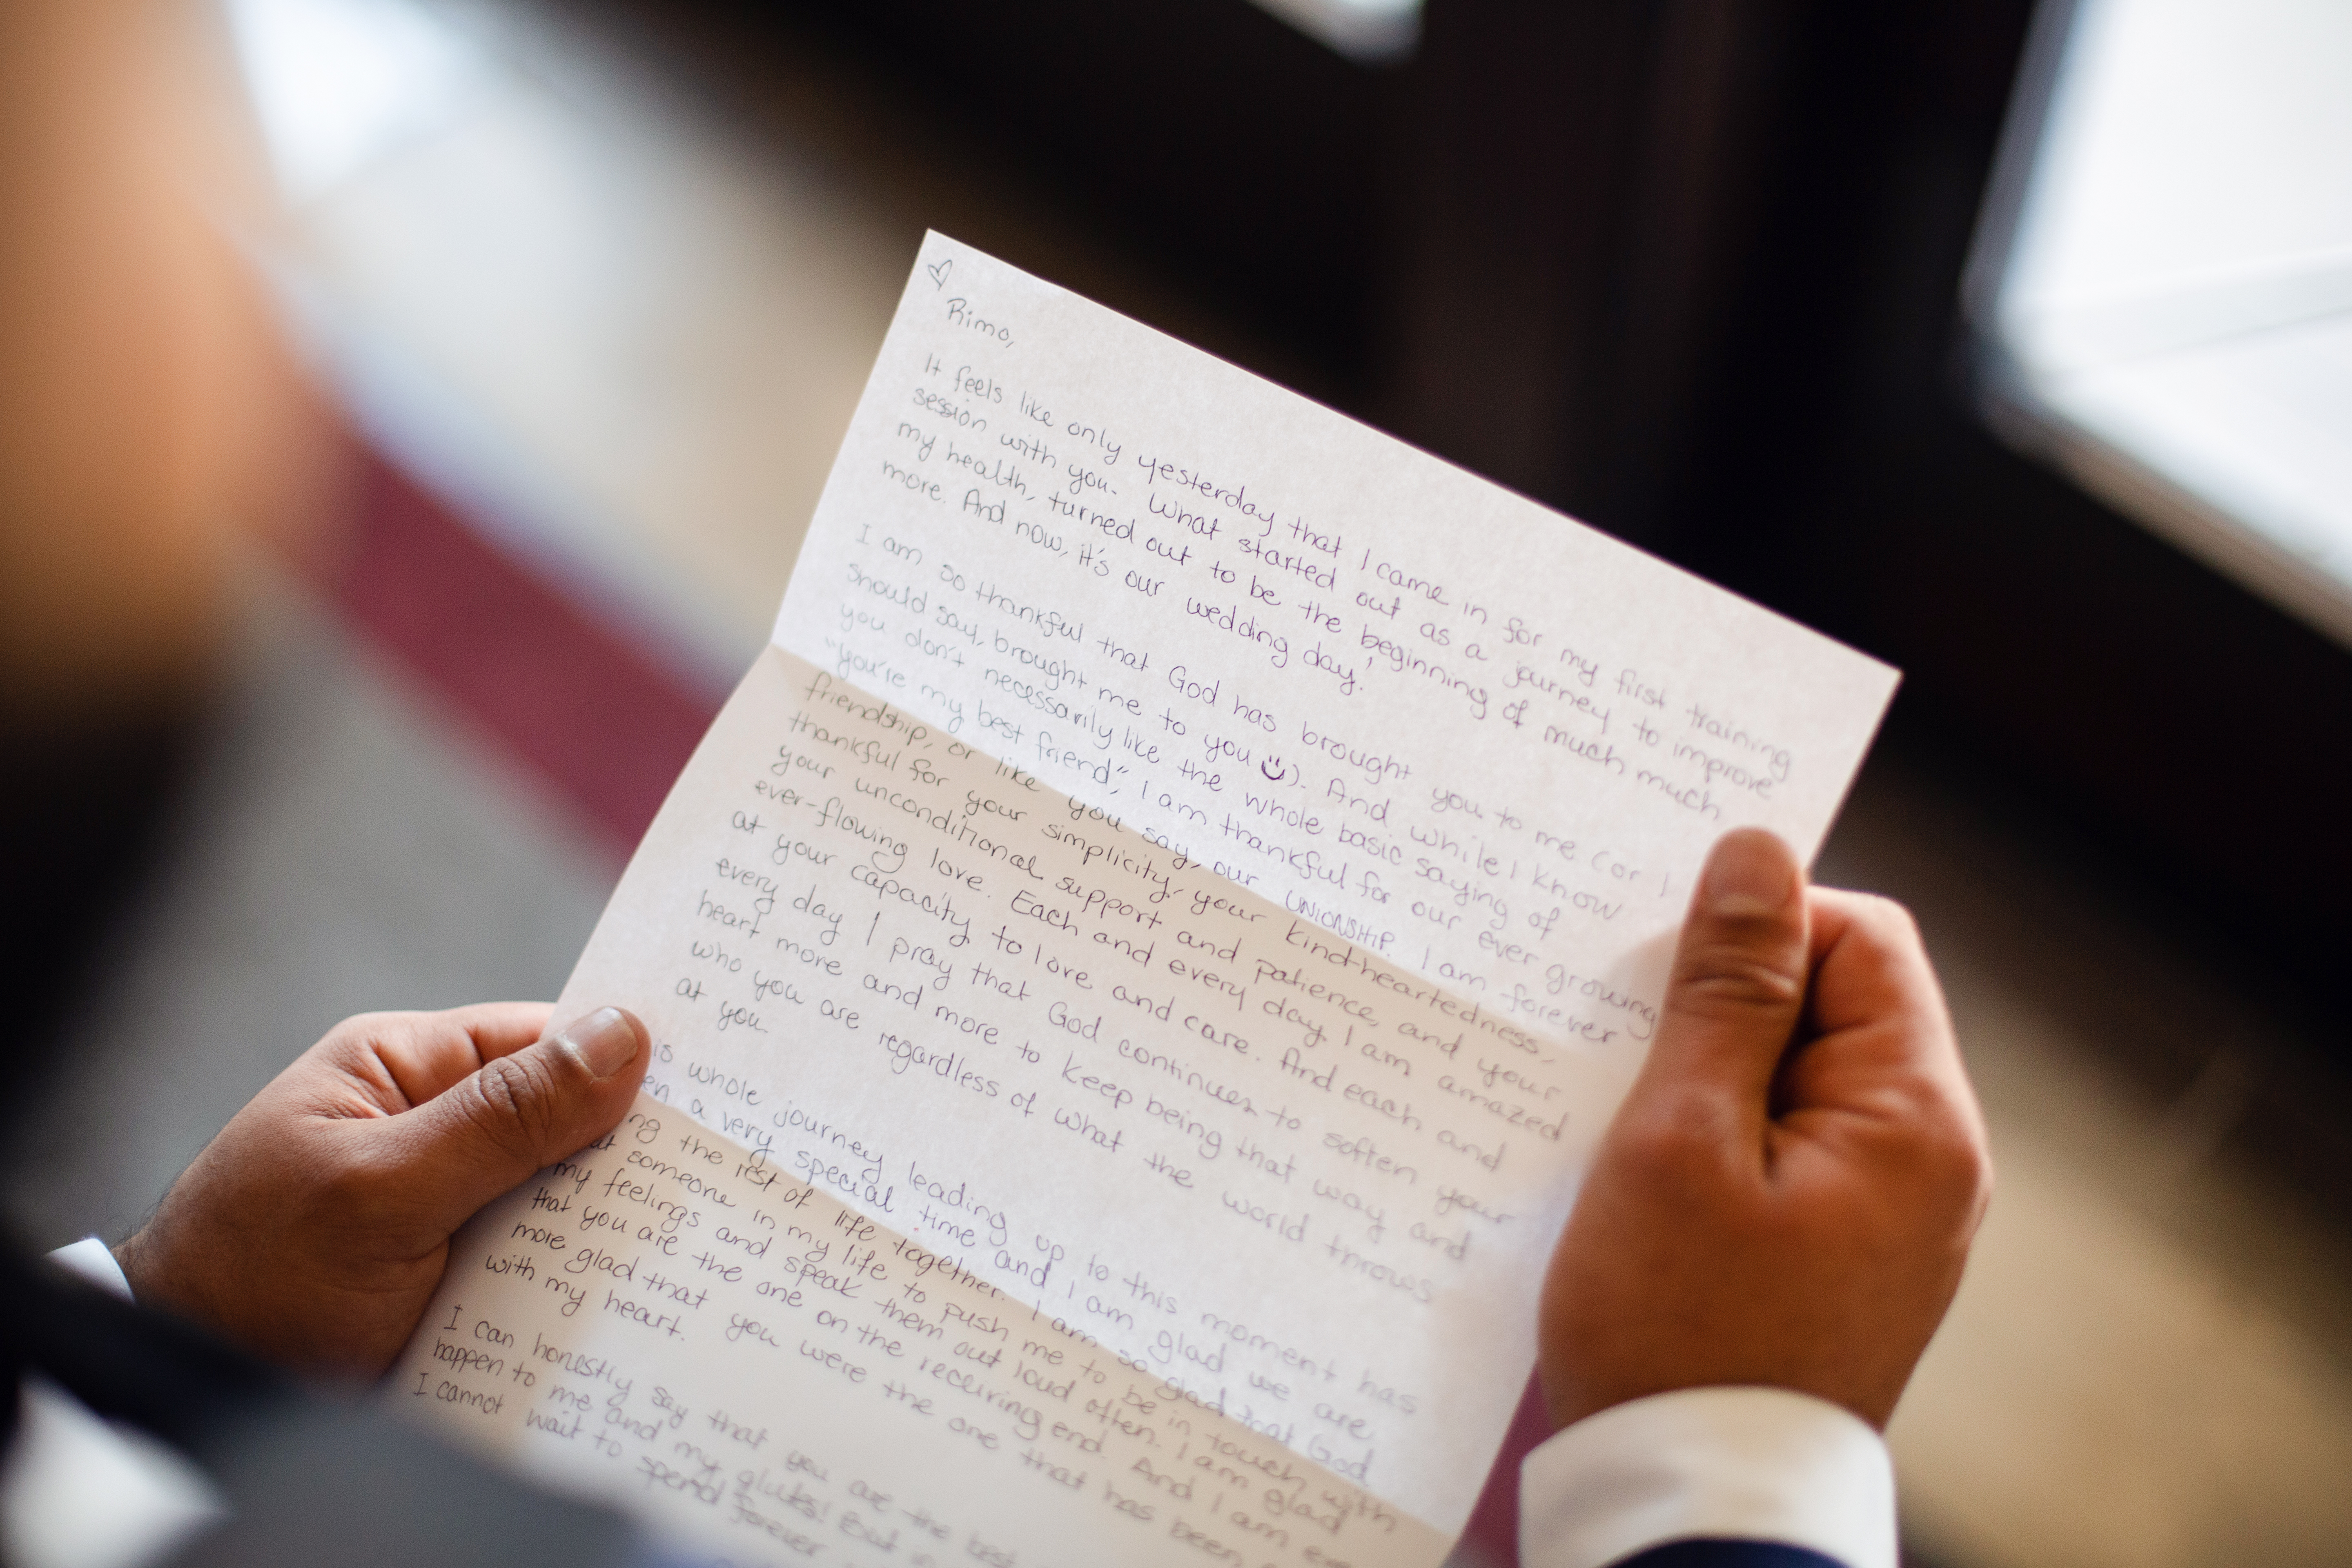 Rimo,
It feels like only yesterday that I came in for my first training
session with you. What started out as a journey to improve
my health, turned out to be the beginning of much much
more. And now, it's our wedding day!
I am so thankful that God has brought you to me (or I
should say, brought me to you). And while I know
you don't necessarily like the whole basic saying of
"you're my best friend", I am thankful for our ever growing
friendship, or like you say, our UNIONSHIP. I am forever
thankful for your simplicity, your kind-heartedness,
your unconditional support and patience, and your
ever-flowing love. Each and every day I am amazed
at your capacity to love and care. And each and
every day I pray that God continues to soften your
heart more and more to keep being that way and
who you are regardless of what the world throws
at you.
is whole journey leading up to this moment has
en a very special time and I am glad we are
ng the rest of life together. I am so glad that God
ut someone in my life to push me to be in touch with
my feelings and speak them out loud often. I am glad
that you are the one on the receiving end. And I am
more glad that you were the one that has been
with my heart.
I can honestly say that you are the best
happen to me and my glutes! But in
I cannot wait to spend forever